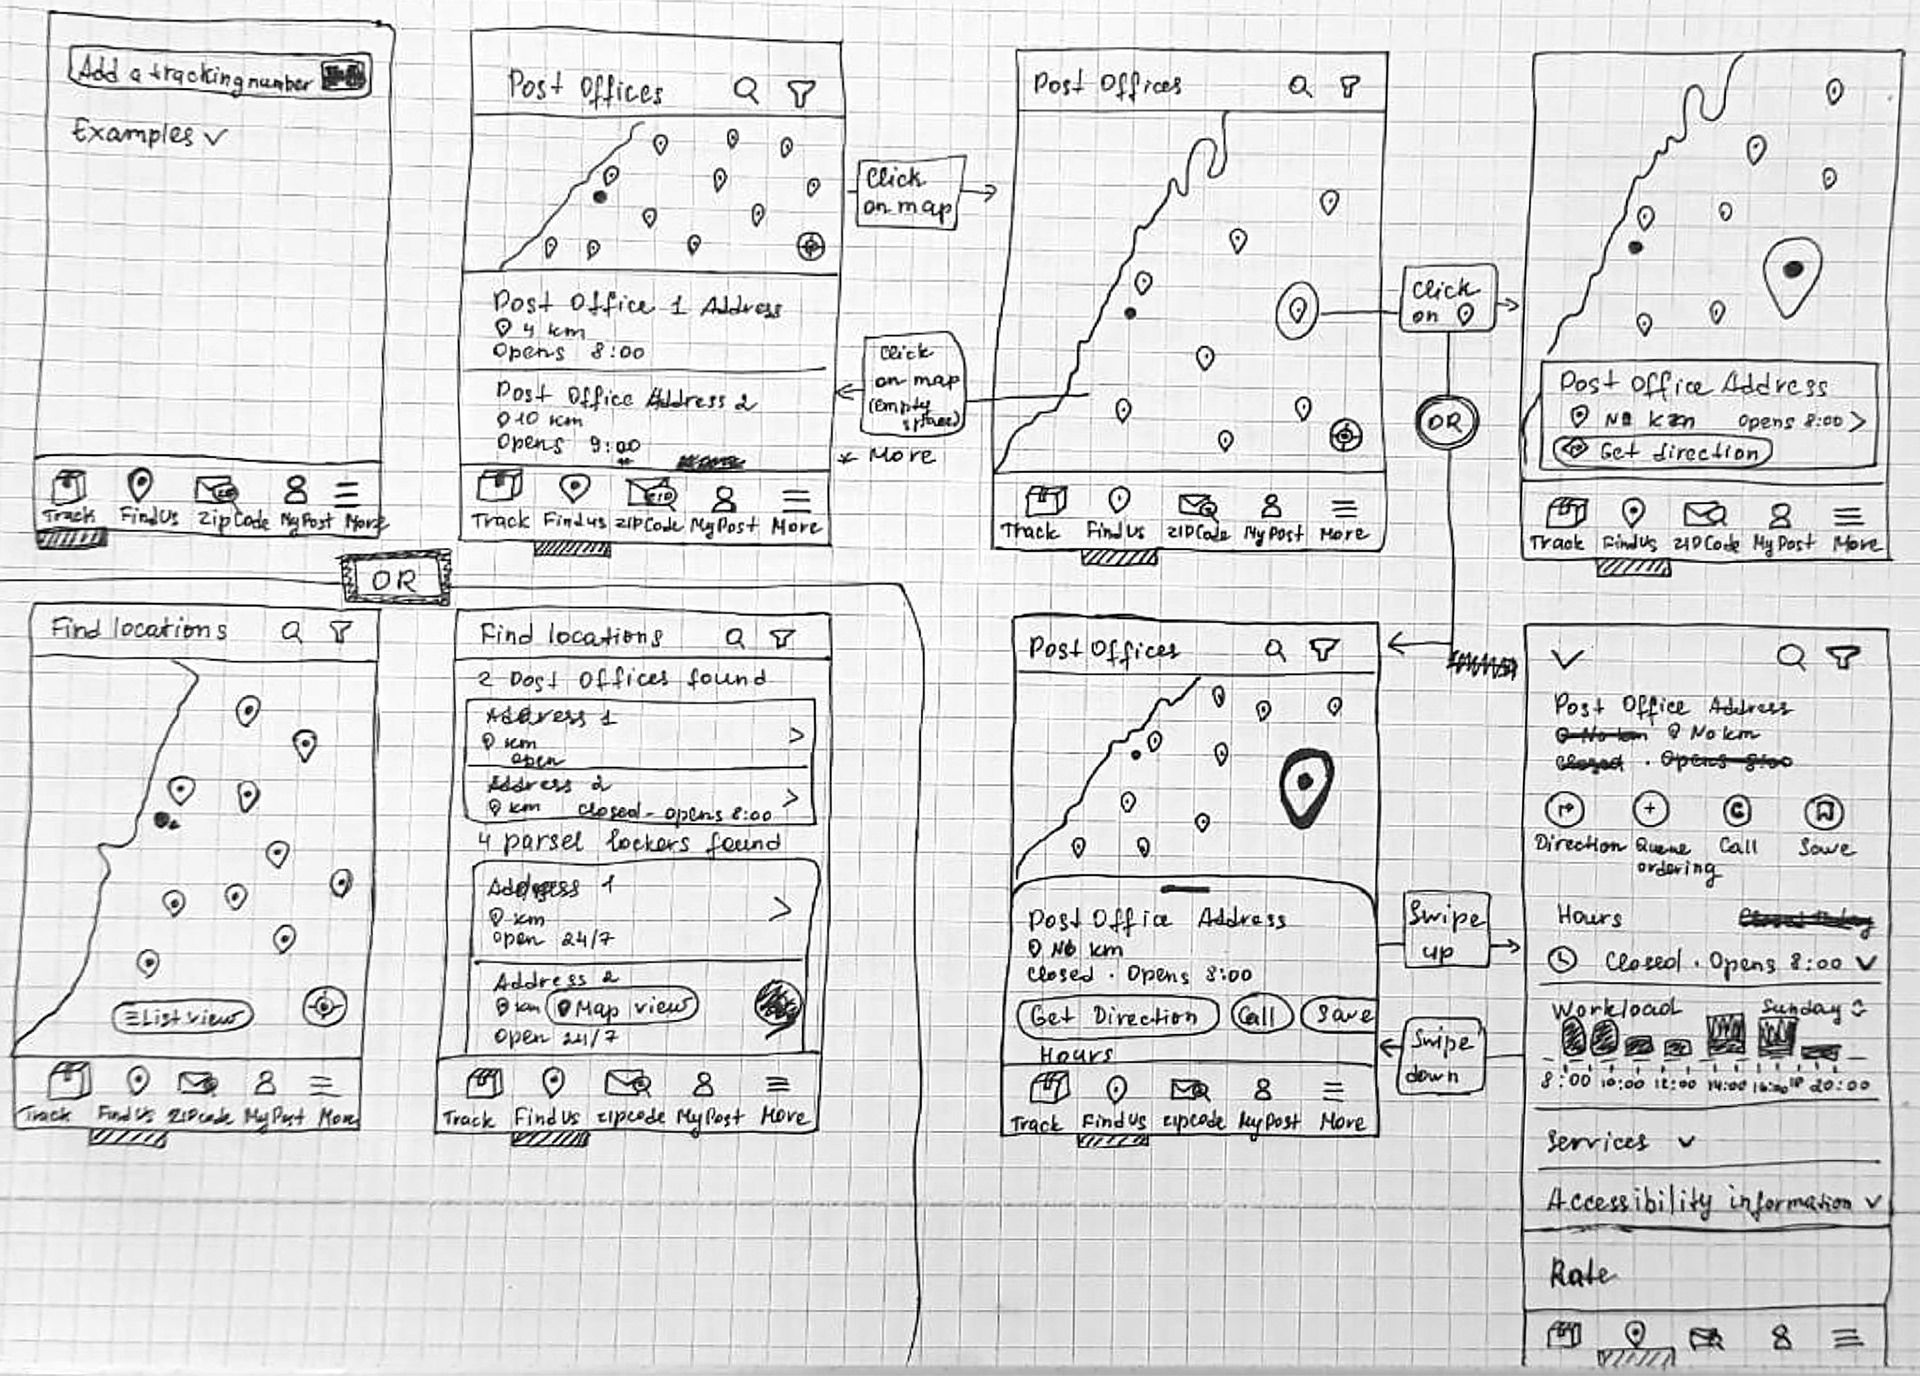 Add a tracking number
Examples
Track FindUs ZipCode MyPost More
Post Offices
Post Office 1 Address
4 km
Opens 8:00
Post Office Address 2
10 km
Opens 9:00
Track Find us ZIPCode MyPost More
Click
on map
Click
on map
(empty
space)
* More
Post Offices
Track FindUs ZIPCode MyPost More
Click
on
OR
Post Office Address
No km Opens 8:00
Get direction
Track FindUs ZIPCode MyPost More
OR
Find locations
List view
Track FindUs ZIPcode MyPost More
Find locations
2 Post Offices found
Address 1
km
open
Address 2
km closed - opens 8:00
4 parsel lockers found
Address 1
km
open 24/7
Address 2
km Map view
Open 24/7
Track FindUs zipcode MyPost More
Post Offices
Post Office Address
No km
closed · Opens 8:00
Get Direction Call Save
Hours
Track FindUs zipcode MyPost More
Swipe
up
Swipe
down
Post Office Address
No km No km
closed · Opens 8:00
Direction Queue
ordering Call Save
Hours Closed today
Closed · Opens 8:00
Workload Sunday
8:00 10:00 12:00 14:00 20:00
Services
Accessibility information
Rate